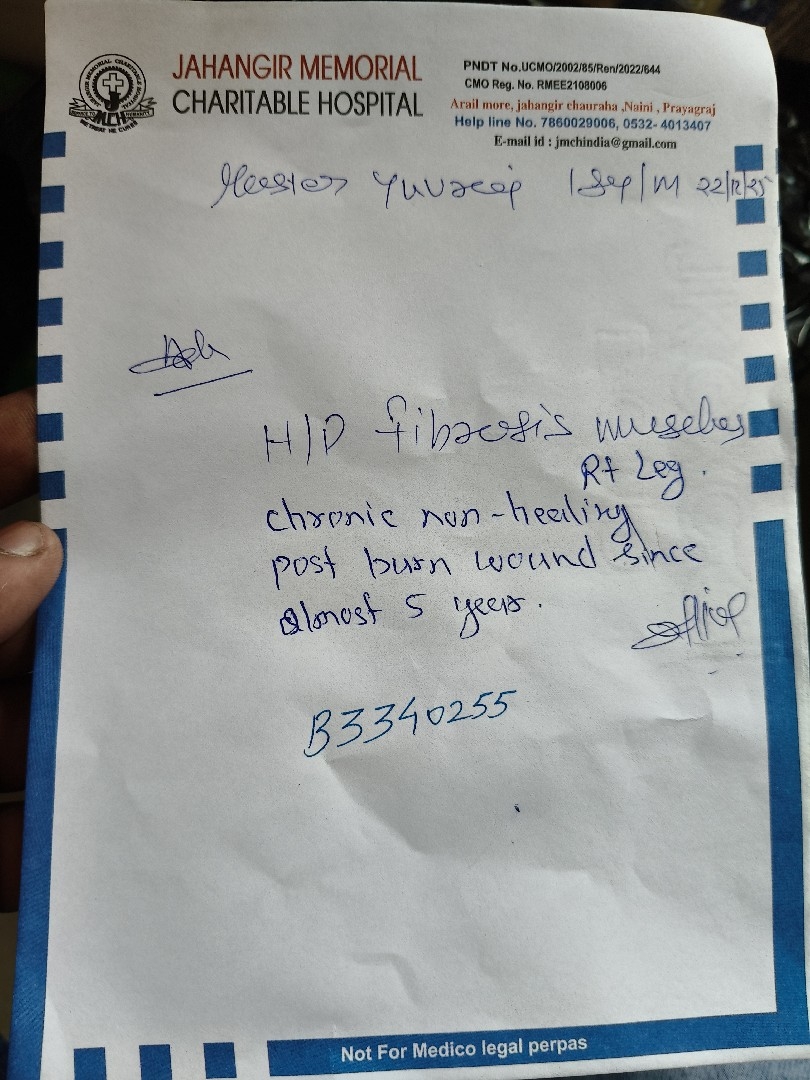 JAHANGIR MEMORIAL
CHARITABLE HOSPITAL
PNDT No.UCMO/2002/85/Ren/2022/644
CMO Reg. No. RMEE2108006
Arail more, jahangir chauraha ,Naini , Prayagraj
Help line No. 7860029006, 0532- 4013407
E-mail id : jmchindia@gmail.com
Master Yuvraj /M 22/12/25
H/O fibrosis muscles
Rt Leg.
chronic non-healing
post burn wound since
almost 5 years.
B3340255
Not For Medico legal perpas